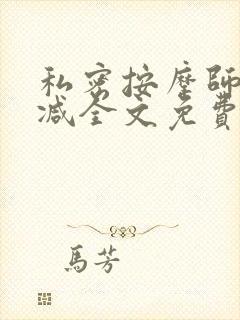 私密按摩師
減全文免費
馬芳